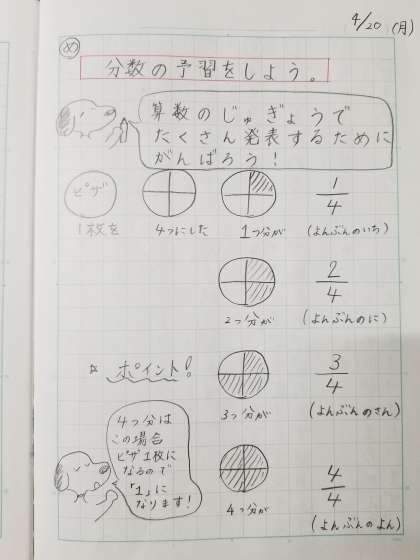 4/20 (月)
め
分数の予習をしよう。
算数のじゅぎょうで
たくさん発表するために
がんばろう!
ピザ
1枚を
4つにした
1つ分が
1/4
(よんぶんのいち)
2つ分が
2/4
(よんぶんのに)
ポイント!
3つ分が
3/4
(よんぶんのさん)
4つ分は
この場合
ピザ1枚に
なるので
「1」に
なります!
4つ分が
4/4
(よんぶんのよん)